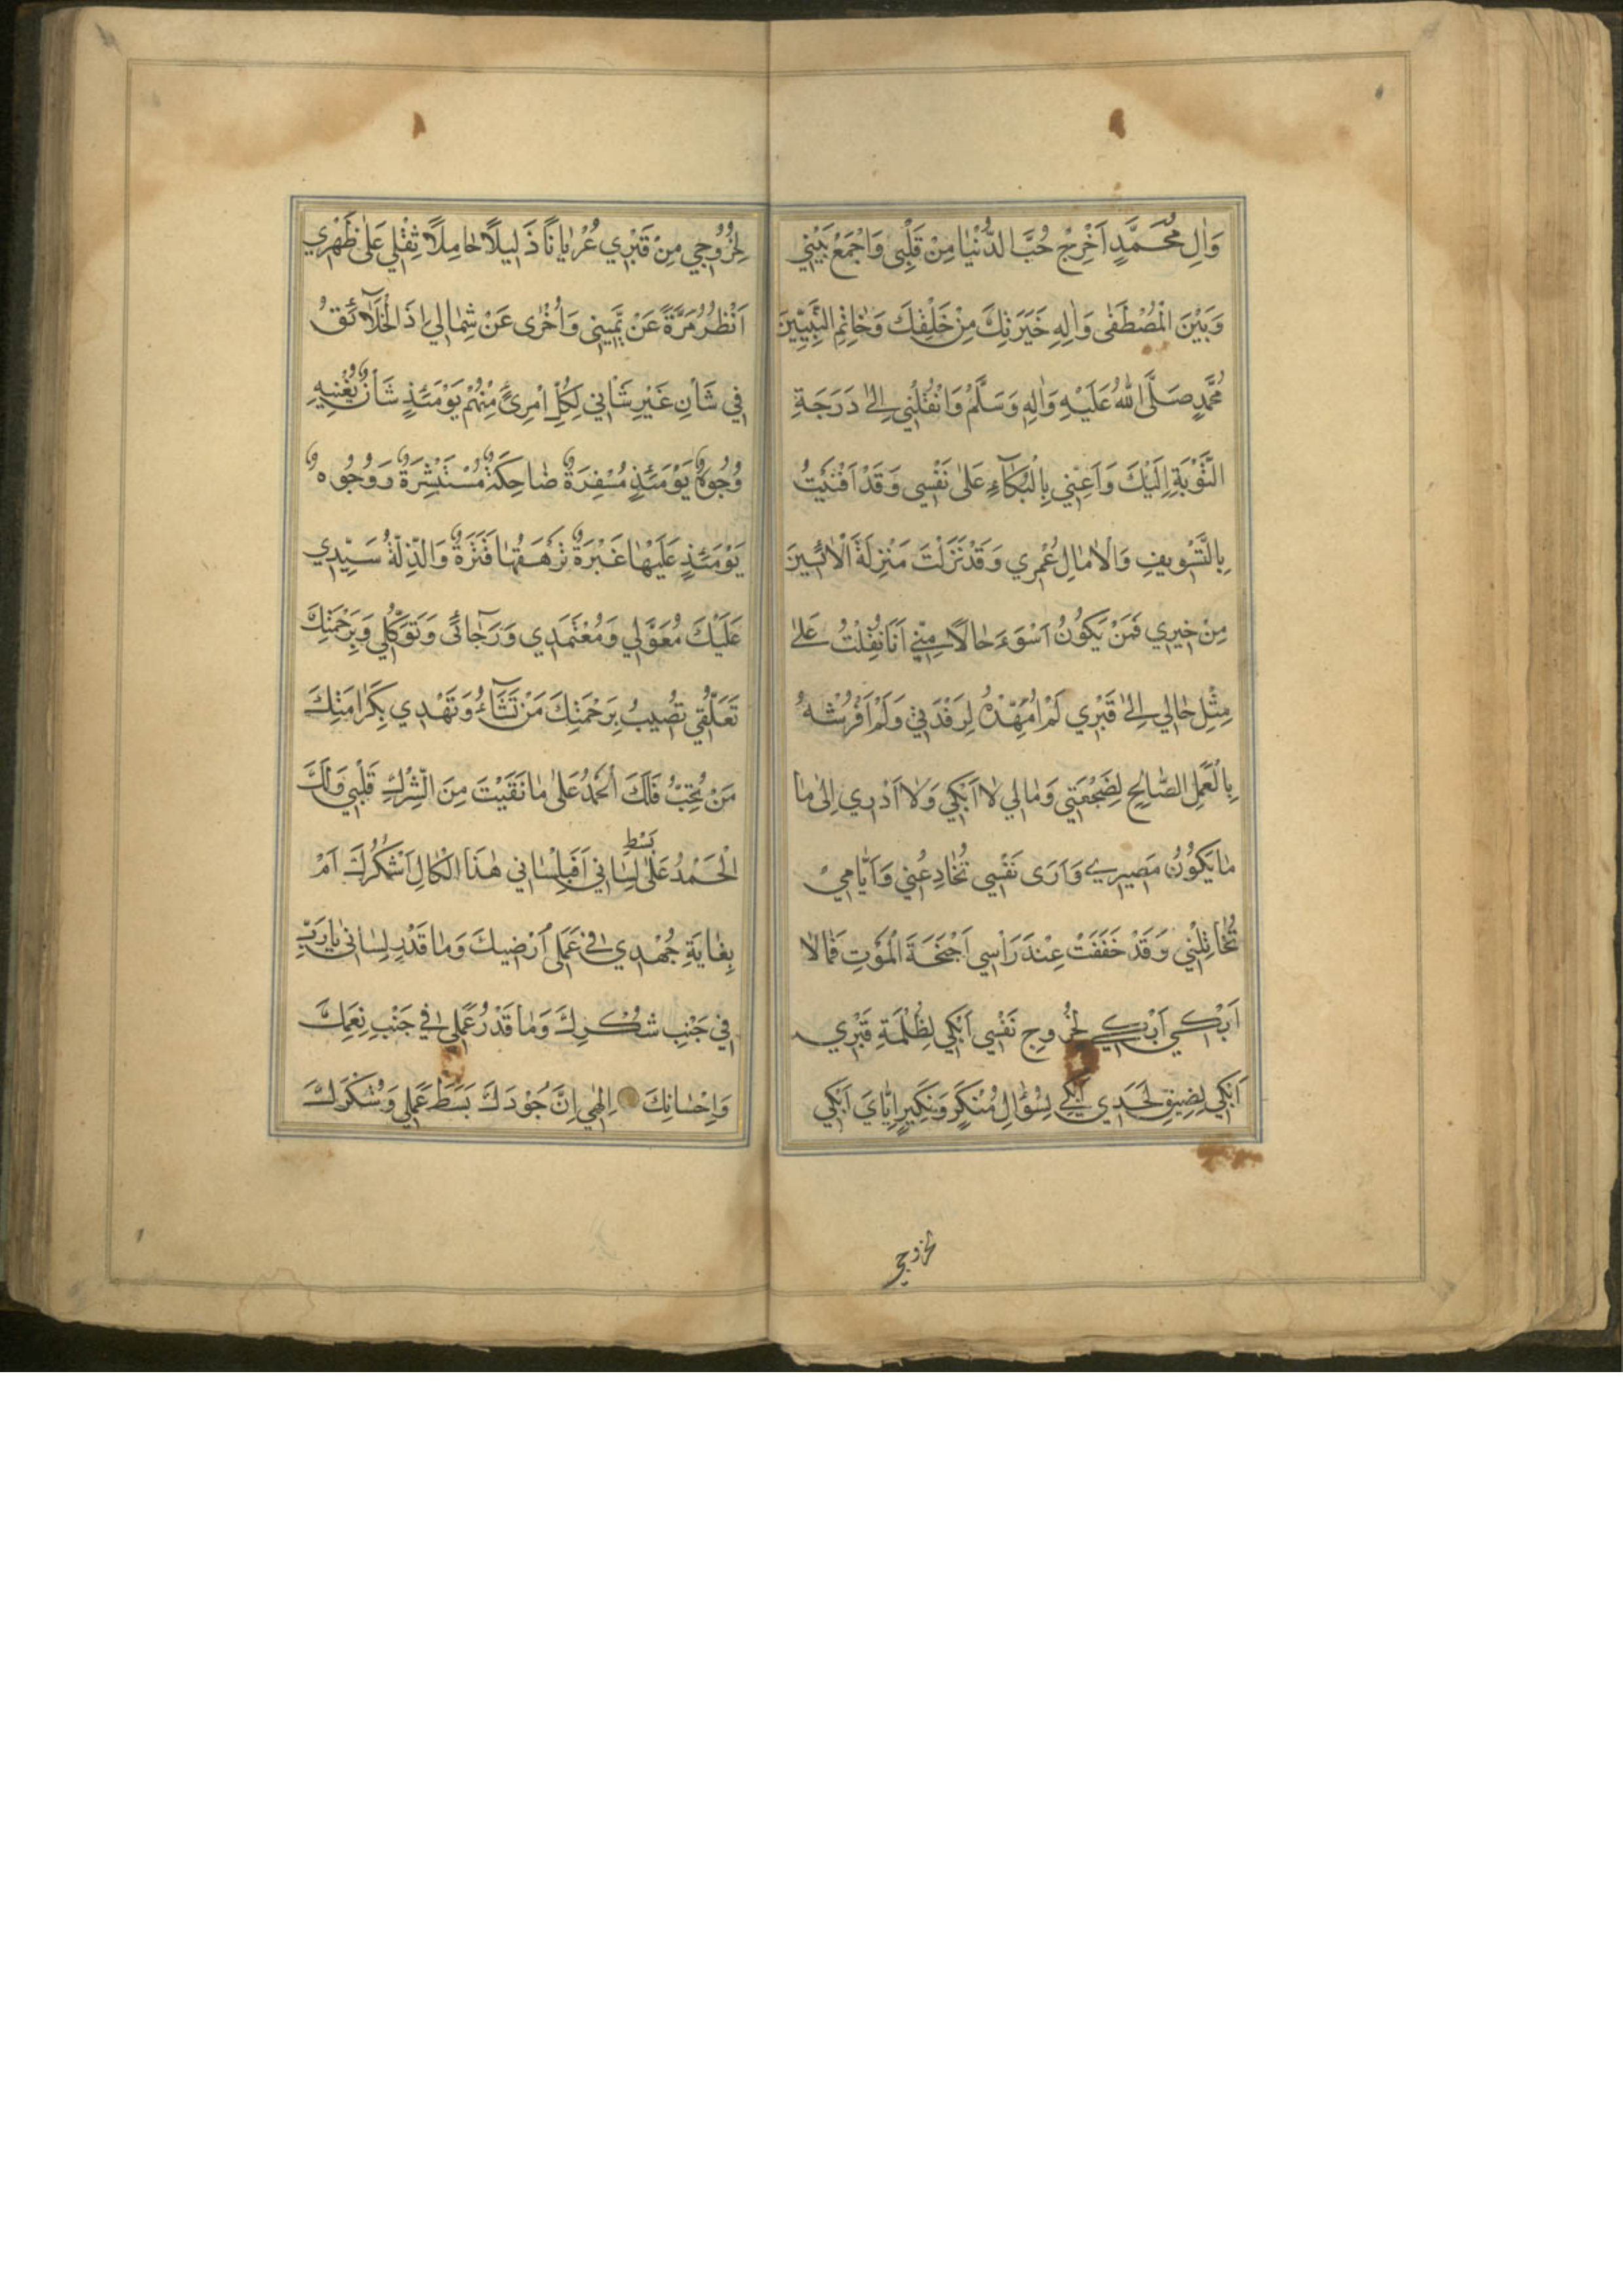 وَاٰلِ مُحَمَّدٍ اَخْرِجْ حُبَّ الدُّنْيٰا مِنْ قَلْبِى وَاجْمَعْ بَيْنِي
وَبَيْنَ الْمُصْطَفٰى وَاٰلِهِ خِيَرَتِكَ مِنْ خَلْقِكَ وَخٰاتِمِ النَّبِيّيٖنَ
مُحَمَّدٍ صَلَّى اللهُ عَلَيْهِ وَاٰلِهٖ وَسَلَّمْ وَانْقُلْنِي اِلىٰ دَرَجَةِ
التَّوْبَةِ اِلَيْكَ وَاَعِنّي بِالْبُكٰآءِ عَلىٰ نَفْسِي وَقَدْ اَفْنَيْتُ
بِالتَّسْوٖيفِ وَالْاٰمٰالِ عُمْري وَقَدْ نَزَلْتُ مَنْزِلَةَ الْاٰئِسٖينَ
مِنْ خَيْري فَمَنْ يَكُونُ اَسْوَءَ حٰالًا مِنّي اَنَا نُقِلْتُ عَلىٰ
مِثْلِ حٰالي اِلىٰ قَبْرِي لَمْ اُمَهِّدْهُ لِرَقْدَتِي وَلَمْ اَفْرُشْهُ
بِالْعَمَلِ الصّٰالِحِ لِضَجْعَتِي وَمٰالي لاٰ اَبْكي وَلاٰ اَدْري اِلىٰ مٰا
مٰا يَكُونُ مَصيري وَاَرىٰ نَفْسِي تُخٰادِعُنِي وَاَيّٰامِي
تُخٰاتِلُنِي وَقَدْ خَفَقَتْ عِنْدَ رَاْسِي اَجْنِحَةُ الْمَوْتِ فَمٰالي لاٰ
اَبْكي اَبْكي لِخُرُوجِ نَفْسِي اَبْكي لِظُلْمَةِ قَبْرِي
اَبْكي لِضيقِ لَحَدي اَبْكي لِسُؤٰالِ مُنْكَرٍ وَنَكيرٍ اِيّٰايَ اَبْكي
لخروجي
لِخُرُوجي مِنْ قَبْري عُرْيٰانًا ذَليلًا حٰامِلًا ثِقْلي عَلىٰ ظَهْري
اَنْظُرُ مَرَّةً عَنْ يَميٖنِي وَاُخْرىٰ عَنْ شِمٰالي اِذِ الْخَلآٰئِقُ
في شَأْنٍ غَيْرِ شَأْني لِكُلِّ امْرِئٍ مِنْهُمْ يَوْمَئِذٍ شَأْنٌ يُغْنيٖهِ
وُجُوهٌ يَوْمَئِذٍ مُسْفِرَةٌ ضٰاحِكَةٌ مُسْتَبْشِرَةٌ وَوُجُوهٌ
يَوْمَئِذٍ عَلَيْهٰا غَبَرَةٌ تَرْهَقُهٰا قَتَرَةٌ وَالذِّلَّةُ سَيِّدي
عَلَيْكَ مُعَوَّلي وَمُعْتَمَدي وَرَجٰائي وَتَوَكُّلي وَبِرَحْمَتِكَ
تَعَلُّقي تُصيبُ بِرَحْمَتِكَ مَنْ تَشٰآءُ وَتَهْدي بِكَرٰامَتِكَ
مَنْ تُحِبُّ فَلَكَ الْحَمْدُ عَلىٰ مٰا نَقَّيْتَ مِنَ الشِّرْكِ قَلْبي وَلَكَ
الْحَمْدُ عَلىٰ بَسْطِ لِسٰاني اَفَبِلِسٰاني هٰذَا الْكٰالِّ اَشْكُرُكَ اَمْ
بِغٰايَةِ جُهْدي في عَمَلي اُرْضيكَ وَمٰا قَدْرُ لِسٰاني يٰا رَبِّ
في جَنْبِ شُكْرِكَ وَمٰا قَدْرُ عَمَلي في جَنْبِ نِعَمِكَ
وَاِحْسٰانِكَ اِلٰهي اِنَّ جُوْدَكَ بَسَطَ عَمَلي وَشُكْرَكَ